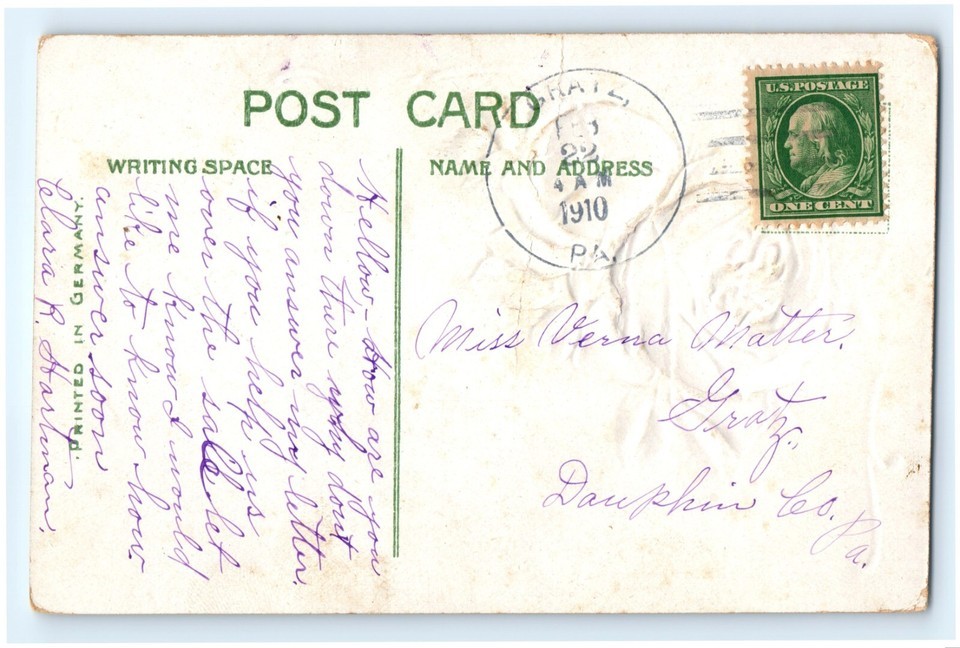 POST CARD
WRITING SPACE
NAME AND ADDRESS
GRATZ,
FEB
22
4 AM
1910
PA.
U.S. POSTAGE
ONE CENT
Hellow - How are you
down there why dont
you answer my letter.
if you help us
over the sale let
me know I would
like to know how
answer soon
Clara R. Hartman.
PRINTED IN GERMANY.
Miss Verna Matter.
Gratz,
Dauphin Co.
Pa.